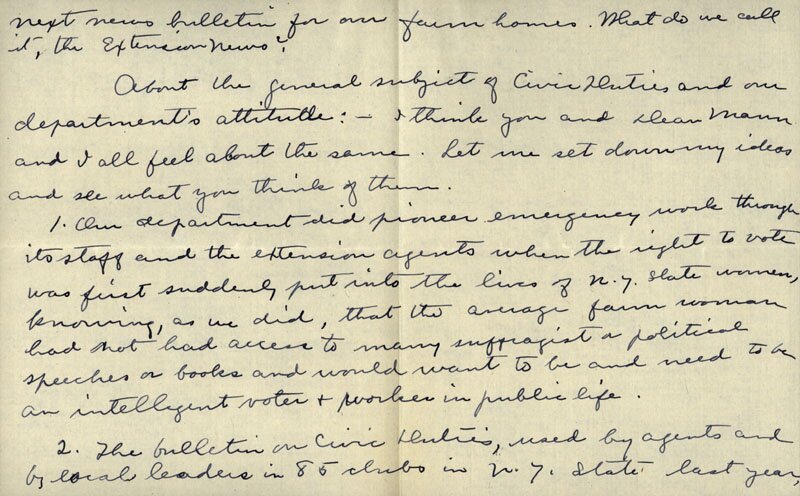 next news bulletin for our farm homes. What do we call
it, the Extension News?
About the general subject of Civic Duties and our
department's attitude: — I think you and Dean Mann
and I all feel about the same. Let me set down my ideas
and see what you think of them.
1. Our department did pioneer emergency work through
its staff and the extension agents when the right to vote
was first suddenly put into the lives of N.Y. State women,
knowing, as we did, that the average farm woman
had not had access to many suffragist or political
speeches or books and would want to be and need to be
an intelligent voter + worker in public life.
2. The bulletin on Civic Duties, used by agents and
by local leaders in 85 clubs in N.Y. State last year,